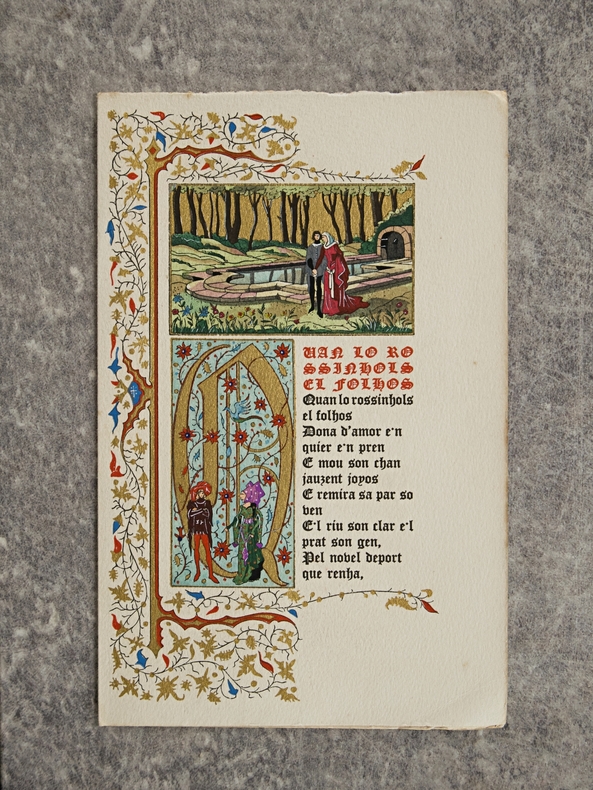 QUAN LO RO
SSINHOLS
EL FOLHOS
Quan lo rossinhols
el folhos
Dona d'amor e·n
quier e·n pren
E mou son chan
jauzent joyos
E remira sa par so
ven
E·l riu son clar e·l
prat son gen,
Pel novel deport
que renha,